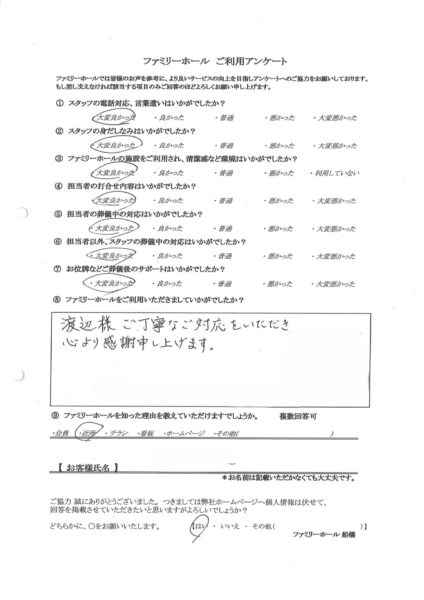 ファミリーホール　ご利用アンケート
ファミリーホールでは皆様のお声を参考に、より良いサービスの向上を目指しアンケートへのご協力をお願いしております。
もし差し支えなければ該当する項目のみご回答のほどよろしくお願い申し上げます。
① スタッフの電話対応、言葉遣いはいかがでしたか？
・大変良かった ・良かった ・普通 ・悪かった ・大変悪かった
② スタッフの身だしなみはいかがでしたか？
・大変良かった ・良かった ・普通 ・悪かった ・大変悪かった
③ ファミリーホールの施設をご利用され、清潔感など環境はいかがでしたか？
・大変良かった ・良かった ・普通 ・悪かった ・利用していない
④ 担当者の打合せ内容はいかがでしたか？
・大変良かった ・良かった ・普通 ・悪かった ・大変悪かった
⑤ 担当者の葬儀中の対応はいかがでしたか？
・大変良かった ・良かった ・普通 ・悪かった ・大変悪かった
⑥ 担当者以外、スタッフの葬儀中の対応はいかがでしたか？
・大変良かった ・良かった ・普通 ・悪かった ・大変悪かった
⑦ お位牌などご葬儀後のサポートはいかがでしたか？
・大変良かった ・良かった ・普通 ・悪かった ・大変悪かった
⑧ ファミリーホールをご利用いただきましていかがでしたか？
渡辺様 ご丁寧なご対応をいただき
心より感謝申し上げます。
⑨ ファミリーホールを知った理由を教えていただけますでしょうか。 複数回答可
・会員 ・近所 ・チラシ ・看板 ・ホームページ ・その他( )
【 お客様氏名 】
＊お名前は記載いただかなくても大丈夫です。
ご協力 誠にありがとうございました。つきましては弊社ホームページへ個人情報は伏せて、
回答を掲載させていただきたいと思いますがよろしいでしょうか？
どちらかに、〇をお願いいたします。 【はい ・ いいえ ・ その他( )】
ファミリーホール 船橋